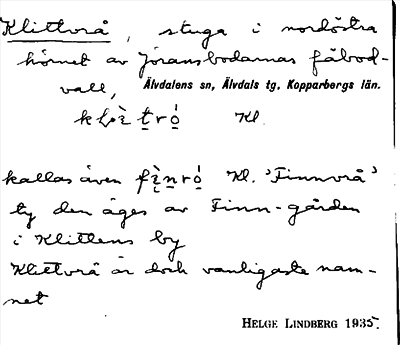 Klittvrå, stuga i nordöstra
hörnet av Jöransbodarnas fäbod-
vall, Älvdalens sn, Älvdals tg. Kopparbergs län.
Kl.
kallas även Kl. 'Finnvrå'
ty den äges av Finn-gården
i Klittens by
Klittvrå är dock vanligaste nam-
net
HELGE LINDBERG 1935.